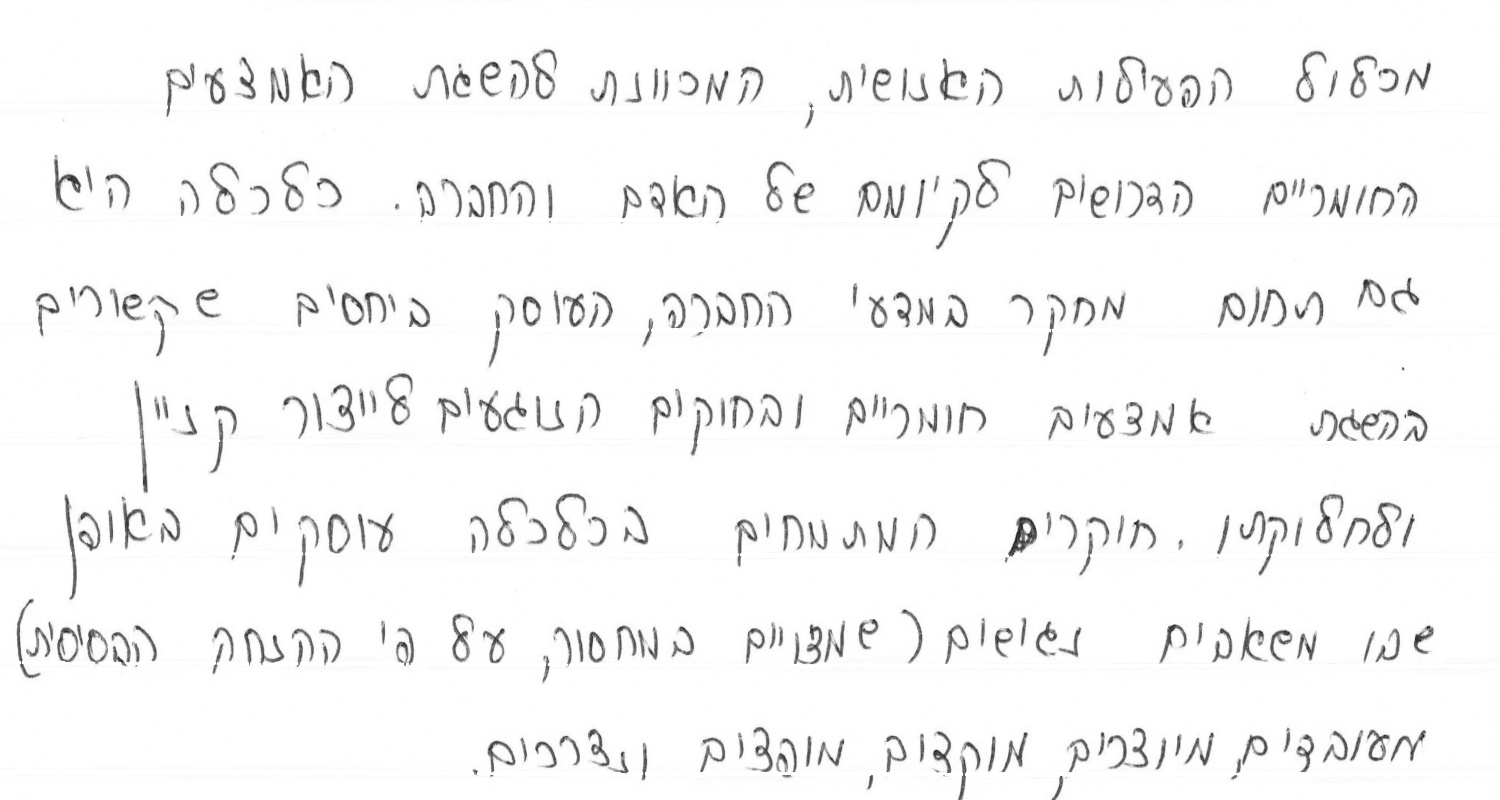 מכלול הפעילות האנושית, המכוונת להשגת האמצעים
החומריים הדרושים לקיומם של האדם והחברה. כלכלה היא
גם תחום מחקר במדעי החברה, העוסק ביחסים שקשורים
בהשגת אמצעים חומריים ובחוקים הנוגעים לייצור קניין
ולחלוקתו. חוקרים המתמחים בכלכלה עוסקים באופן
שבו משאבים נגישים (שמצויים במחסור, על פי ההנחה הבסיסית)
מעובדים, מיוצרים, מוקצים, מופצים ונצרכים.